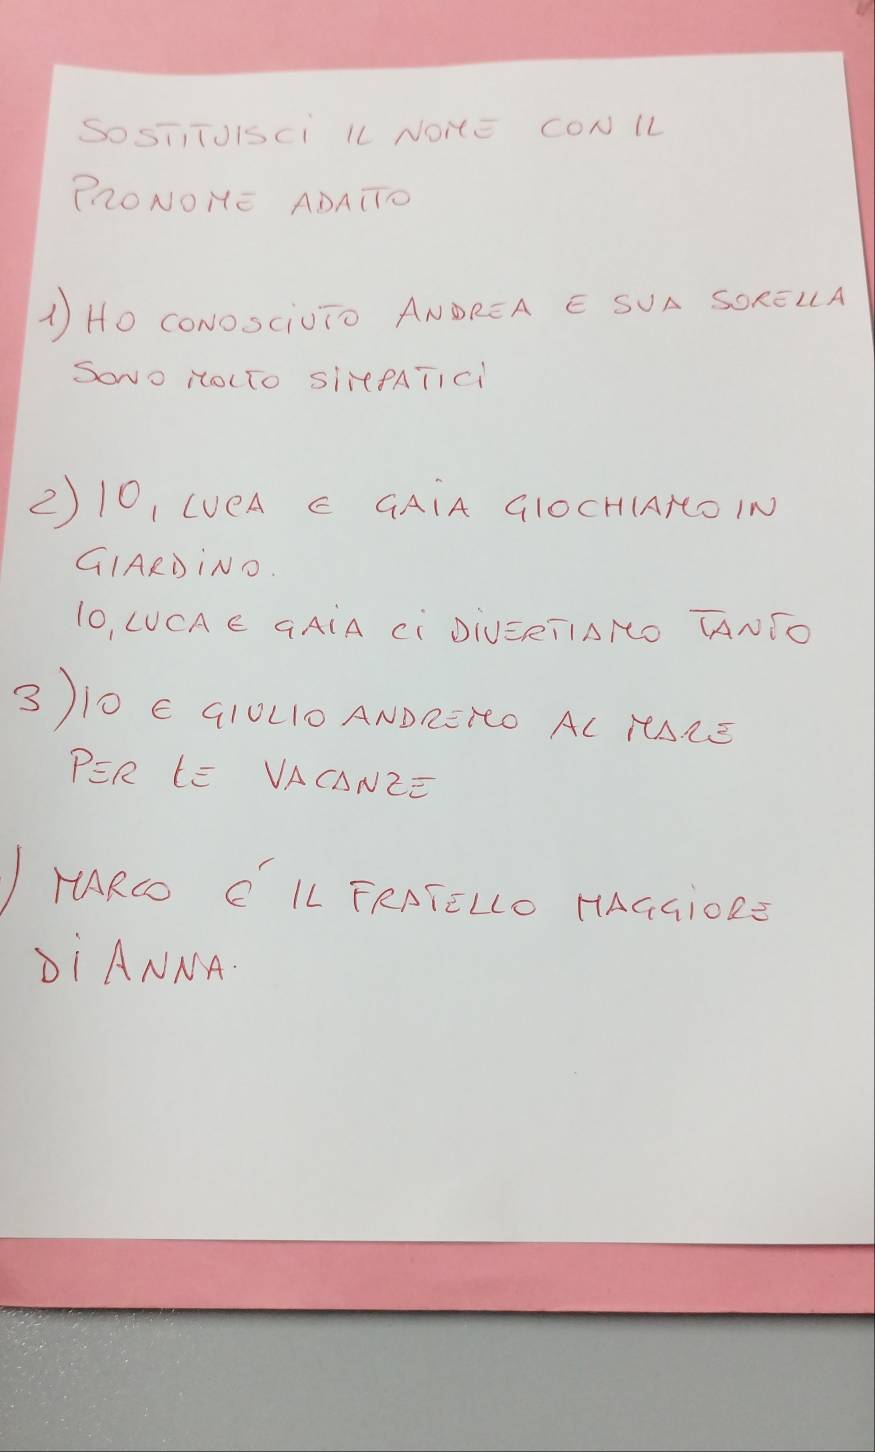 SOSTITUISCI IL NOME CON IL
PRONOME ADATTO
1) HO CONOSCIUTO ANDREA E SUA SORELLA
SONO MOLTO SIMPATICI
2) IO, LUCA E GAIA GIOCHIAMO IN
GIARDINO.
IO, LUCA E GAIA CI DIVERTIAMO TANTO
3) IO E GIULIO ANDREMO AL MARE
PER LE VACANZE
) MARCO E' IL FRATELLO MAGGIORE
DI ANNA.